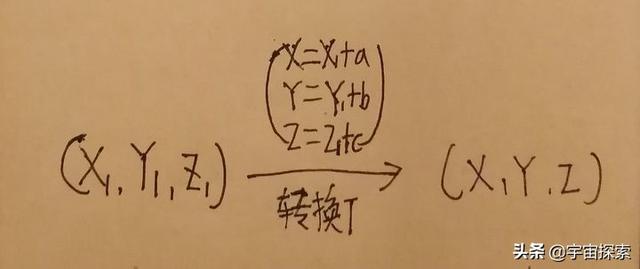 X=X₁+a
Y=Y₁+b
Z=Z₁+c
(X₁,Y₁,Z₁)
转换T
(X,Y,Z)
头条 @宇宙探索